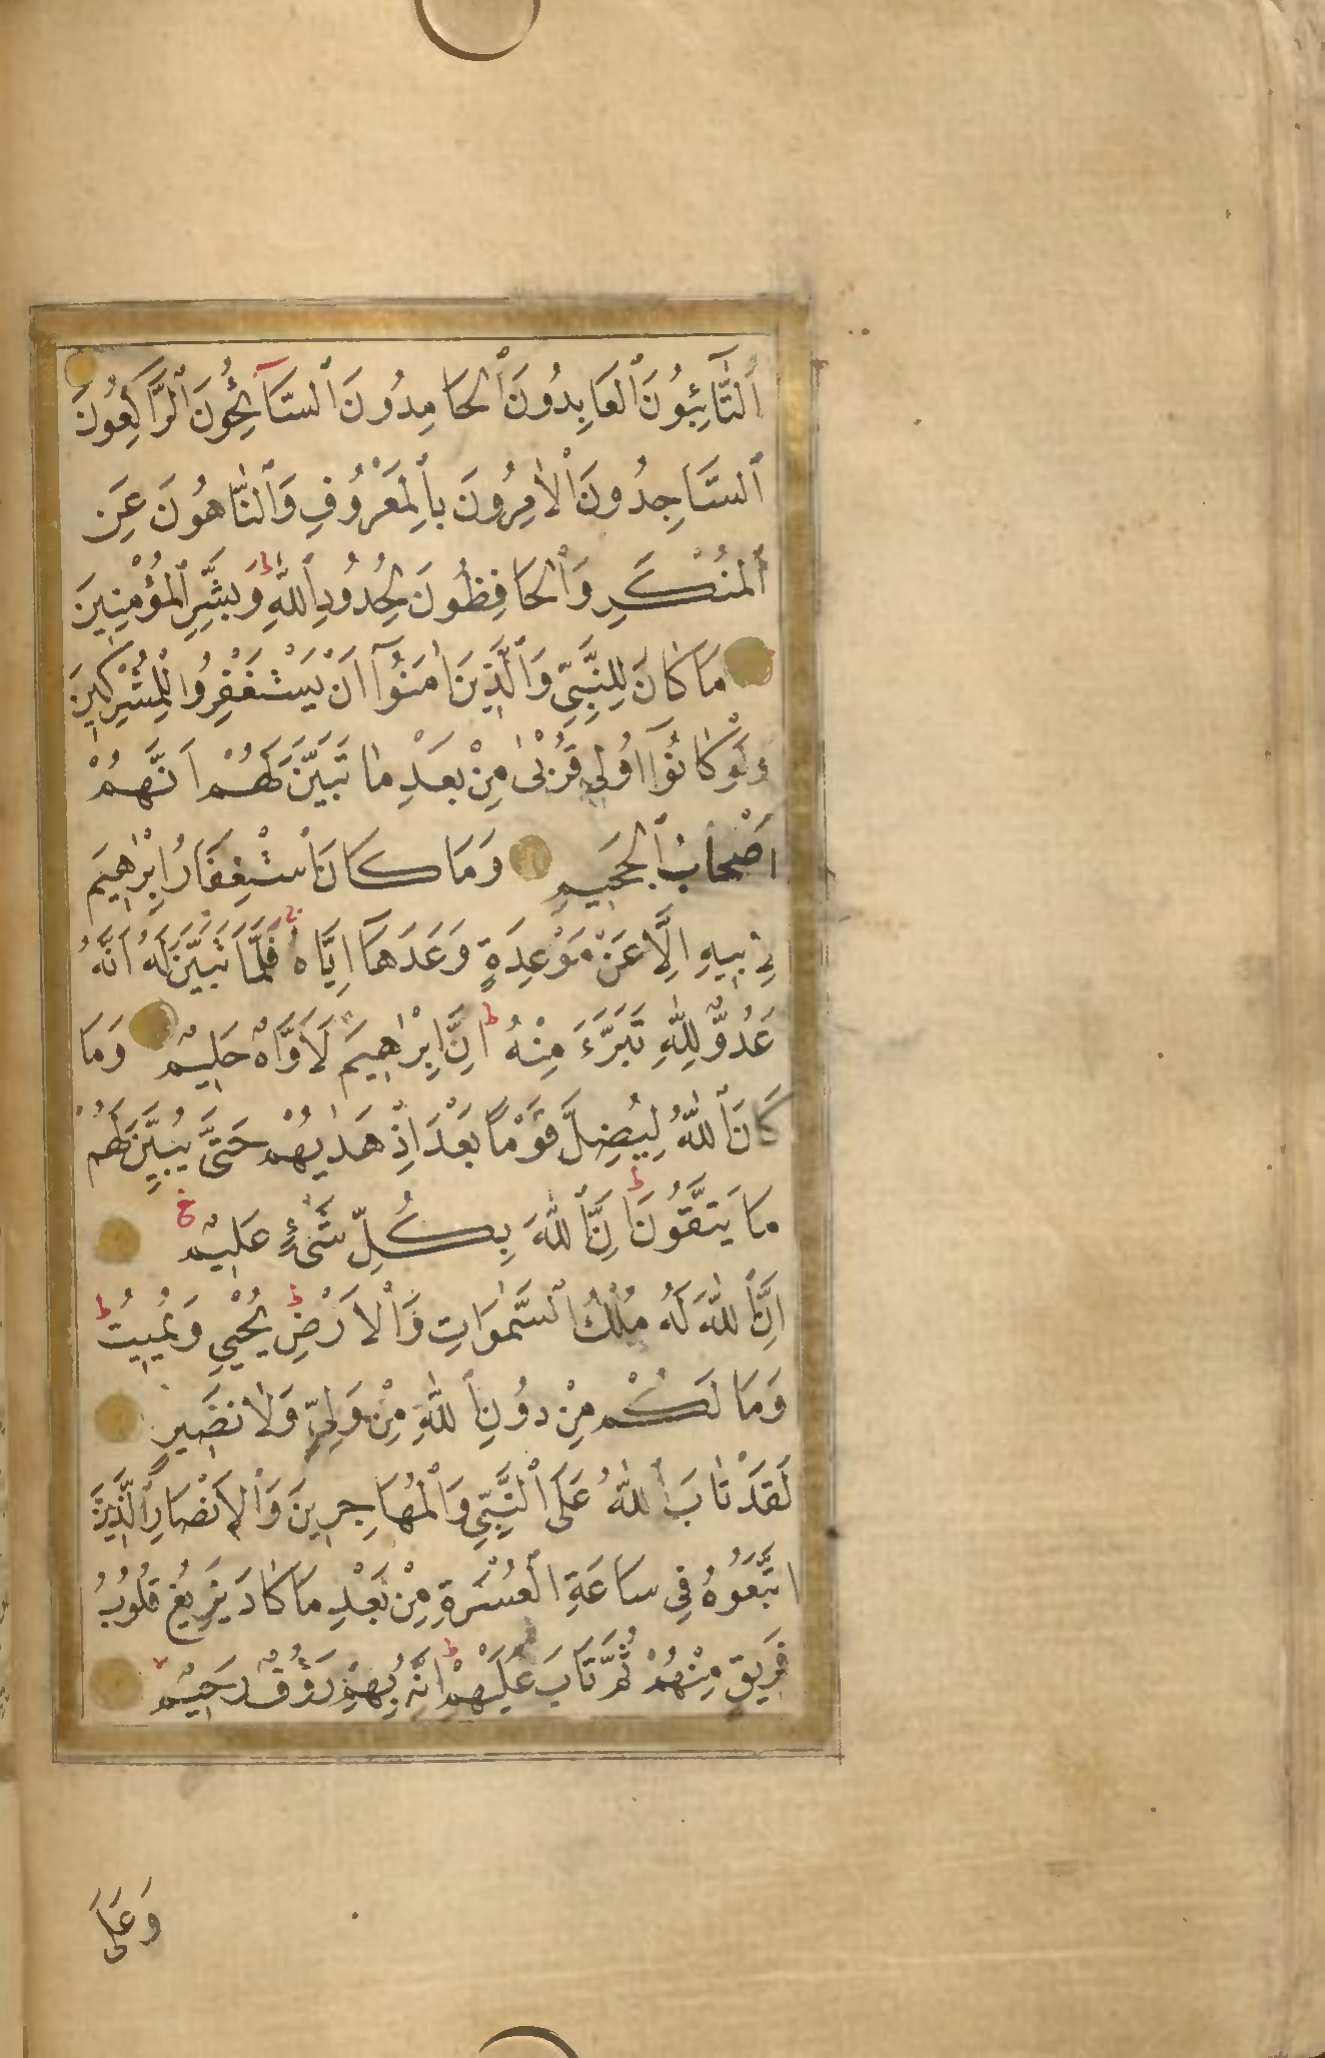 اَلتَّآئِبُونَ ٱلعَابِدُونَ ٱلحَامِدُونَ ٱلسَّآئِحُونَ ٱلرَّاكِعُونَ
ٱلسَّاجِدُونَ ٱلْاٰمِرُونَ بِٱلْمَعْرُوفِ وَٱلنَّاهُونَ عَنِ
ٱلْمُنْكَرِ وَٱلْحَافِظُونَ لِحُدُودِ ٱللّٰهِ ط وَبَشِّرِ ٱلْمُؤْمِنِينَ
مَا كَانَ لِلنَّبِيِّ وَٱلَّذِينَ اٰمَنُوٓا اَنْ يَسْتَغْفِرُوا لِلْمُشْرِكِينَ
وَلَوْ كَانُوٓا اُولِي قُرْبٰى مِنْ بَعْدِ مَا تَبَيَّنَ لَهُمْ اَنَّهُمْ
اَصْحَابُ ٱلْجَحِيمِ وَمَا كَانَ ٱسْتِغْفَارُ اِبْرٰهِيمَ
لِاَبِيهِ اِلَّا عَنْ مَوْعِدَةٍ وَعَدَهَآ اِيَّاهُ ج فَلَمَّا تَبَيَّنَ لَهُ اَنَّهُ
عَدُوٌّ لِلّٰهِ تَبَرَّءَ مِنْهُ ط اِنَّ اِبْرٰهِيمَ لَاَوَّاهٌ حَلِيمٌ وَمَا
كَانَ ٱللّٰهُ لِيُضِلَّ قَوْمًا بَعْدَ اِذْ هَدٰيهُمْ حَتّٰى يُبَيِّنَ لَهُمْ
مَا يَتَّقُونَ ط اِنَّ ٱللّٰهَ بِكُلِّ شَيْءٍ عَلِيمٌ
اِنَّ ٱللّٰهَ لَهُ مُلْكُ ٱلسَّمٰوَاتِ وَٱلْاَرْضِ ط يُحْيِي وَيُمِيتُ ط
وَمَا لَكُمْ مِنْ دُونِ ٱللّٰهِ مِنْ وَلِيٍّ وَلَا نَصِيرٍ
لَقَدْ تَابَ ٱللّٰهُ عَلَى ٱلنَّبِيِّ وَٱلْمُهَاجِرِينَ وَٱلْاَنْصَارِ ٱلَّذِينَ
اتَّبَعُوهُ فِي سَاعَةِ ٱلْعُسْرَةِ مِنْ بَعْدِ مَا كَادَ يَزِيغُ قُلُوبُ
فَرِيقٍ مِنْهُمْ ثُمَّ تَابَ عَلَيْهِمْ ط اِنَّهُ بِهِمْ رَؤُفٌ رَحِيمٌ
وَعَلَى